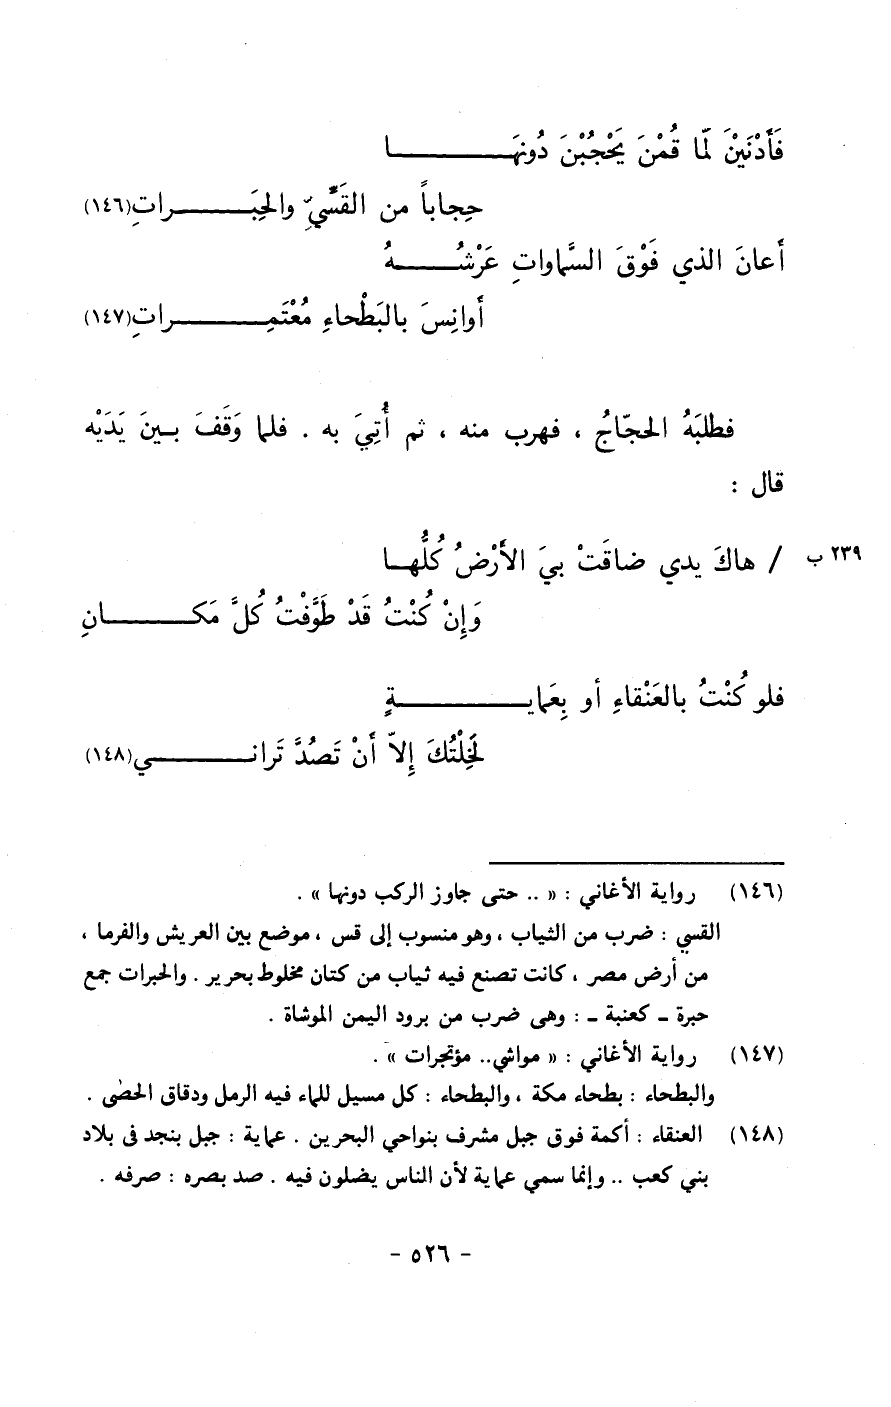 فَأَدْنَيْنَ لَمّا قُمْنَ يَحْجُبْنَ دُونَهَا
حِجاباً من القَسِّيِّ والحِبَراتِ(١٤٦)
أعانَ الذي فَوْقَ السَّماواتِ عَرْشُهُ
أوانِسَ بالبَطْحاءِ مُعْتَمِراتِ(١٤٧)
فطلبَهُ الحجّاجُ ، فهرب منه ، ثم أُتِيَ به . فلما وَقَفَ بينَ يَدَيْه
قال :
٢٣٩ ب / هاكَ يدي ضاقَتْ بيَ الأَرْضُ كُلُّها
وَإِنْ كُنْتُ قَدْ طَوَّفْتُ كُلَّ مَكانِ
فلو كُنْتُ بالعَنْقاءِ أو بِعَمايةٍ
لَخِلْتُكَ إلاّ أَنْ تَصُدَّ تَراني(١٤٨)
(١٤٦) رواية الأغاني : « .. حتى جاوز الركب دونها » .
القسي : ضرب من الثياب ، وهو منسوب إلى قس ، موضع بين العريش والفرما ،
من أرض مصر ، كانت تصنع فيه ثياب من كتان مخلوط بحرير . والحبرات جمع
حبرة ـ كعنبة ـ : وهى ضرب من برود اليمن الموشاة .
(١٤٧) رواية الأغاني : « مواشي.. مؤتجرات » .
والبطحاء : بطحاء مكة ، والبطحاء : كل مسيل للماء فيه الرمل ودقاق الحصى .
(١٤٨) العنقاء : أكمة فوق جبل مشرف بنواحي البحرين . عماية : جبل بنجد فى بلاد
بني كعب .. وإنما سمي عماية لأن الناس يضلون فيه . صد بصره : صرفه .
- ٥٢٦ -